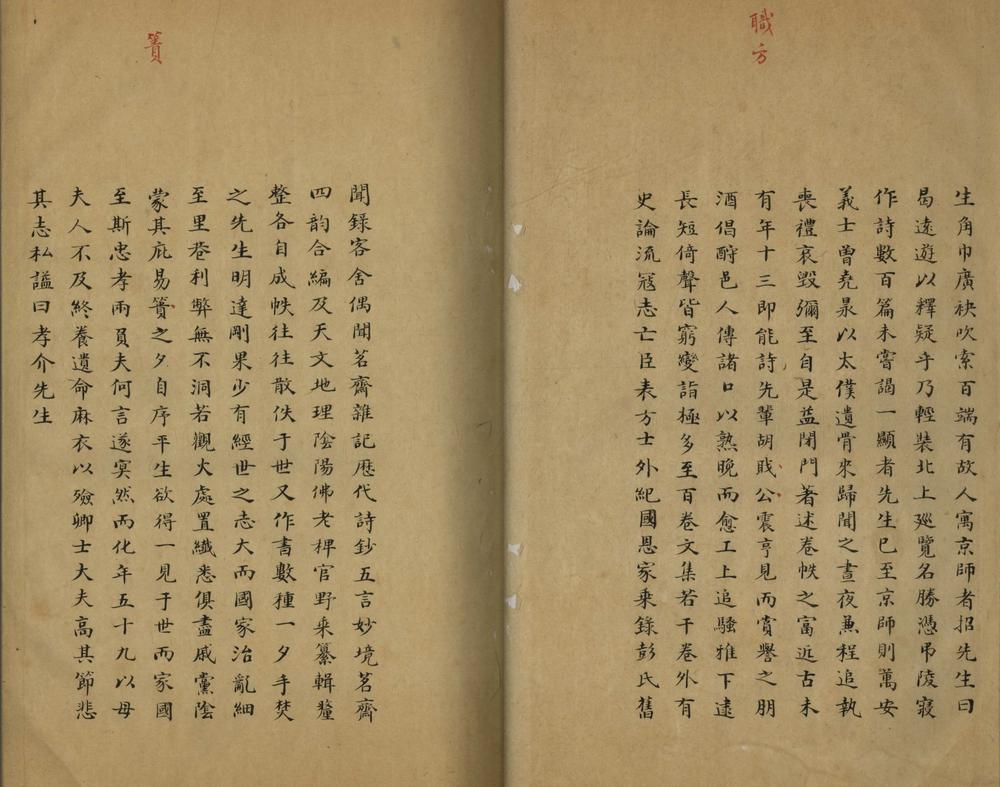 職方
生角巾廣袂吹索百端有故人寓京師者招先生曰
曷遠遊以釋疑乎乃輕裝北上廵覽名勝憑弔陵寢
作詩數百篇未嘗謁一顯者先生已至京師則萬安
義士曾堯泉以太僕遺骨來歸聞之晝夜兼程追執
喪禮哀毀彌至自是益閉門著述卷帙之富近古未
有年十三即能詩先輩胡戝公震亨見而賞譽之朋
酒倡酧邑人傳諸口以熟晚而愈工上追騷雅下逮
長短倚聲皆窮變詣極多至百卷文集若干卷外有
史論流冦志亡臣表方士外紀國恩家乘錄彭氏舊
簀
聞錄客舍偶聞茗齋雜記歷代詩鈔五言妙境茗齋
四韵合編及天文地理陰陽佛老稗官野乘纂輯釐
整各自成帙往往散佚于世又作書數種一夕手焚
之先生明達剛果少有經世之志大而國家治亂細
至里巷利弊無不洞若觀火處置纖悉俱盡戚黨陰
蒙其庇易簀之夕自序平生欲得一見于世而家國
至斯忠孝兩負夫何言遂寞然而化年五十九以母
夫人不及終養遺命麻衣以殮卿士大夫高其節悲
其志私謚曰孝介先生